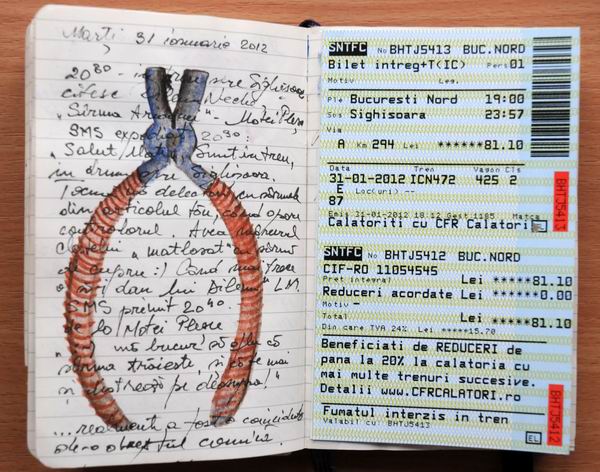 Marți, 31 ianuarie 2012
20³⁰ - în tren spre Sighișoara
citesc Dilema Veche
"Sârma
SMS expediat 20³⁰:
"Salut, Sunt în tren,
în drum spre Sighișoara.
delectat cu sârmele
din articolul tău, când apare
controlorul. Avea mânerul
cleștelui "matlasat" cu sârmă
de cupru :) Când mai trec
"L.M.
SMS primit 20⁴⁰
de la Matei Pleșu
mă bucur să aflu că
sârma trăiește, și că te mai
...realmente a fost o coincidență
obiectul
SNTFC No BHTJ5413 BUC.NORD
Bilet intreg+T(IC) Pers 01
Motiv Leg.
Ple Bucuresti Nord 19:00
Sos Sighisoara 23:57
Via
A Km 294 Lei ******81.10
Data Tren Vagon Cls
31-01-2012 ICN472 425 2
E Loc(uri) --
87
Emis 31-01-2012 18:12 Gest 1185 Matca
Calatoriti cu CFR Calatori
EL
BHTJ5413
SNTFC No BHTJ5412 BUC.NORD
CIF-RO 11054545
Pret integral Lei ******81.10
Reduceri acordate Lei ******0.00
Motiv -
Total Lei ******81.10
Din care TVA 24% Lei *****15.70
Beneficiati de REDUCERI de
pana la 20% la calatoria cu
mai multe trenuri succesive.
Detalii www.CFRCALATORI.ro
Fumatul interzis in tren
Valabil cu: BHTJ5413
EL
BHTJ5412